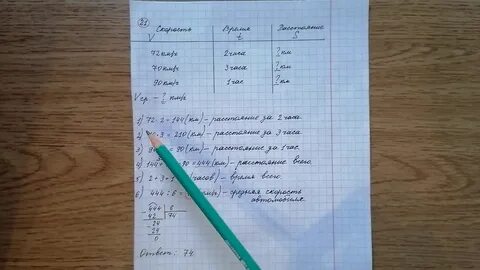 21
Скорость Время Расстояние
V t S
72 км/ч 2 часа ? км
70 км/ч 3 часа ? км
90 км/ч 1 час ? км
Vср. – ? км/ч
1) 72·2=144(км) – расстояние за 2 часа.
2) ·3=210(км) – расстояние за 3 часа.
3) (км) – расстояние за 1 час.
4) 144+ 90=444(км) – расстояние всего.
5) 2+3+1 (часов) – время всего.
6) 444:6= (км/ч) – средняя скорость
автомобиля.
444 6
42 74
24
24
0
Ответ: 74.